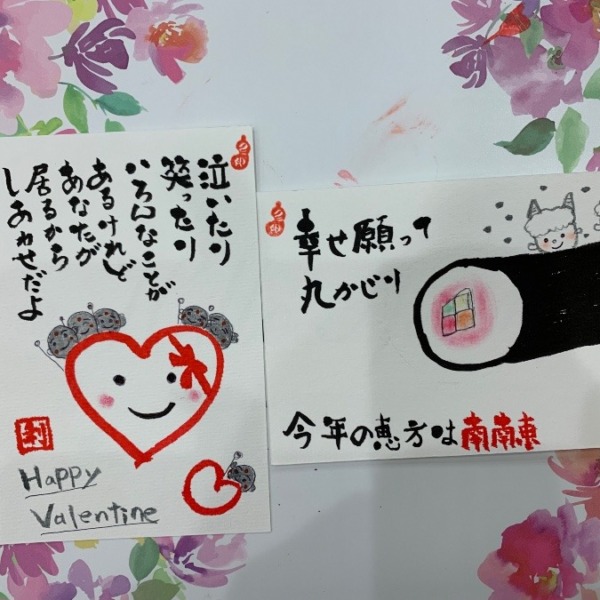 泣いたり
笑ったり
いろんなことが
あるけれど
あなたが
居るから
しあわせだよ
利
Happy
Valentine
幸せ願って
丸かじり
今年の恵方は南南東